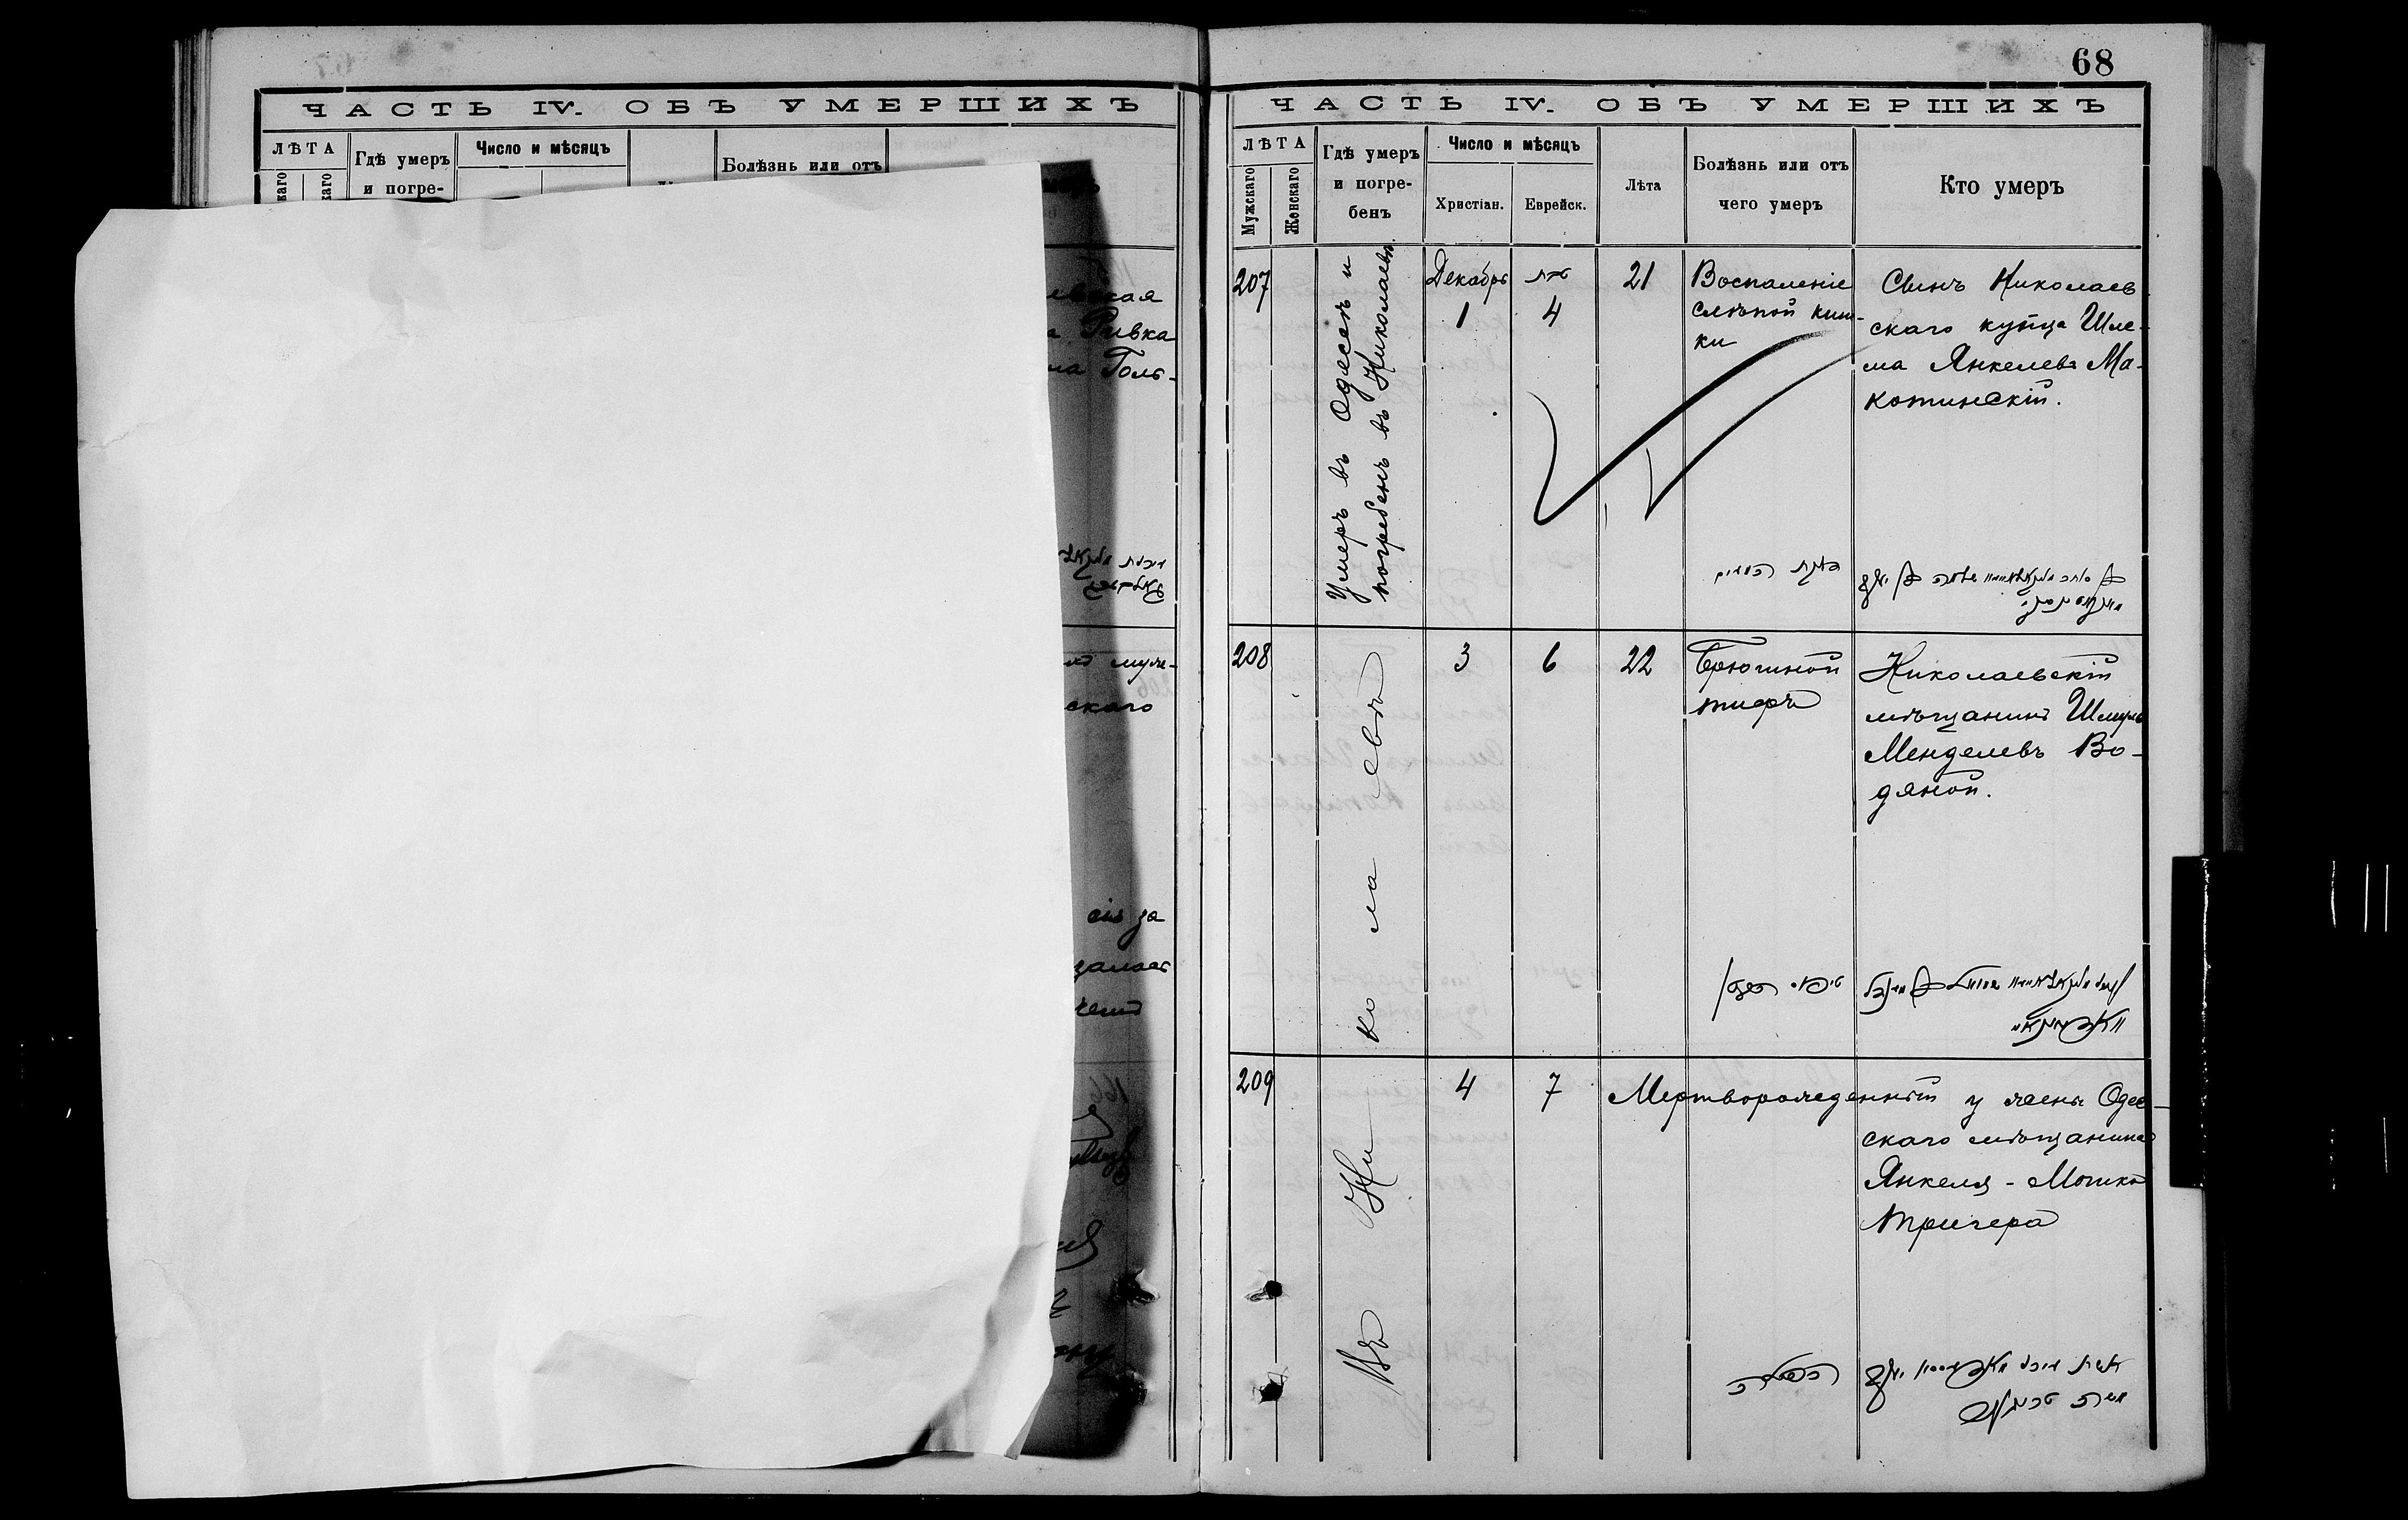 68
ЧАСТЬ IV. ОБЪ УМЕРШИХЪ
ЛѢТА
Гдѣ умеръ
и погре-
Число и мѣсяцъ
Болѣзнь или отъ
Ривка
Голь-
скаго
за
ЧАСТЬ IV. ОБЪ УМЕРШИХЪ
ЛѢТА
Мужскаго
Женскаго
Гдѣ умеръ
и погре-
бенъ
Число и мѣсяцъ
Христіан.
Еврейск.
Лѣта
Болѣзнь или отъ
чего умеръ
Кто умеръ
207
Умеръ въ Одессѣ и
погребенъ въ Николаевѣ.
Декабрь
1
טבת
4
21
Воспаленіе
слѣпой киш-
ки
Сынъ Николаев
скаго купца Шле-
ма Янкелевъ Ма-
котинскій.
208
3
6
22
Брюшной
тифъ
Николаевскій
мѣщанинъ Шмуль
Менделевъ Во-
дяной.
Въ Ни ко ла евѣ
209
4
7
Мертворожденный у жены Одес-
скаго мѣщанина
Янкеля - Мошка
Тригера